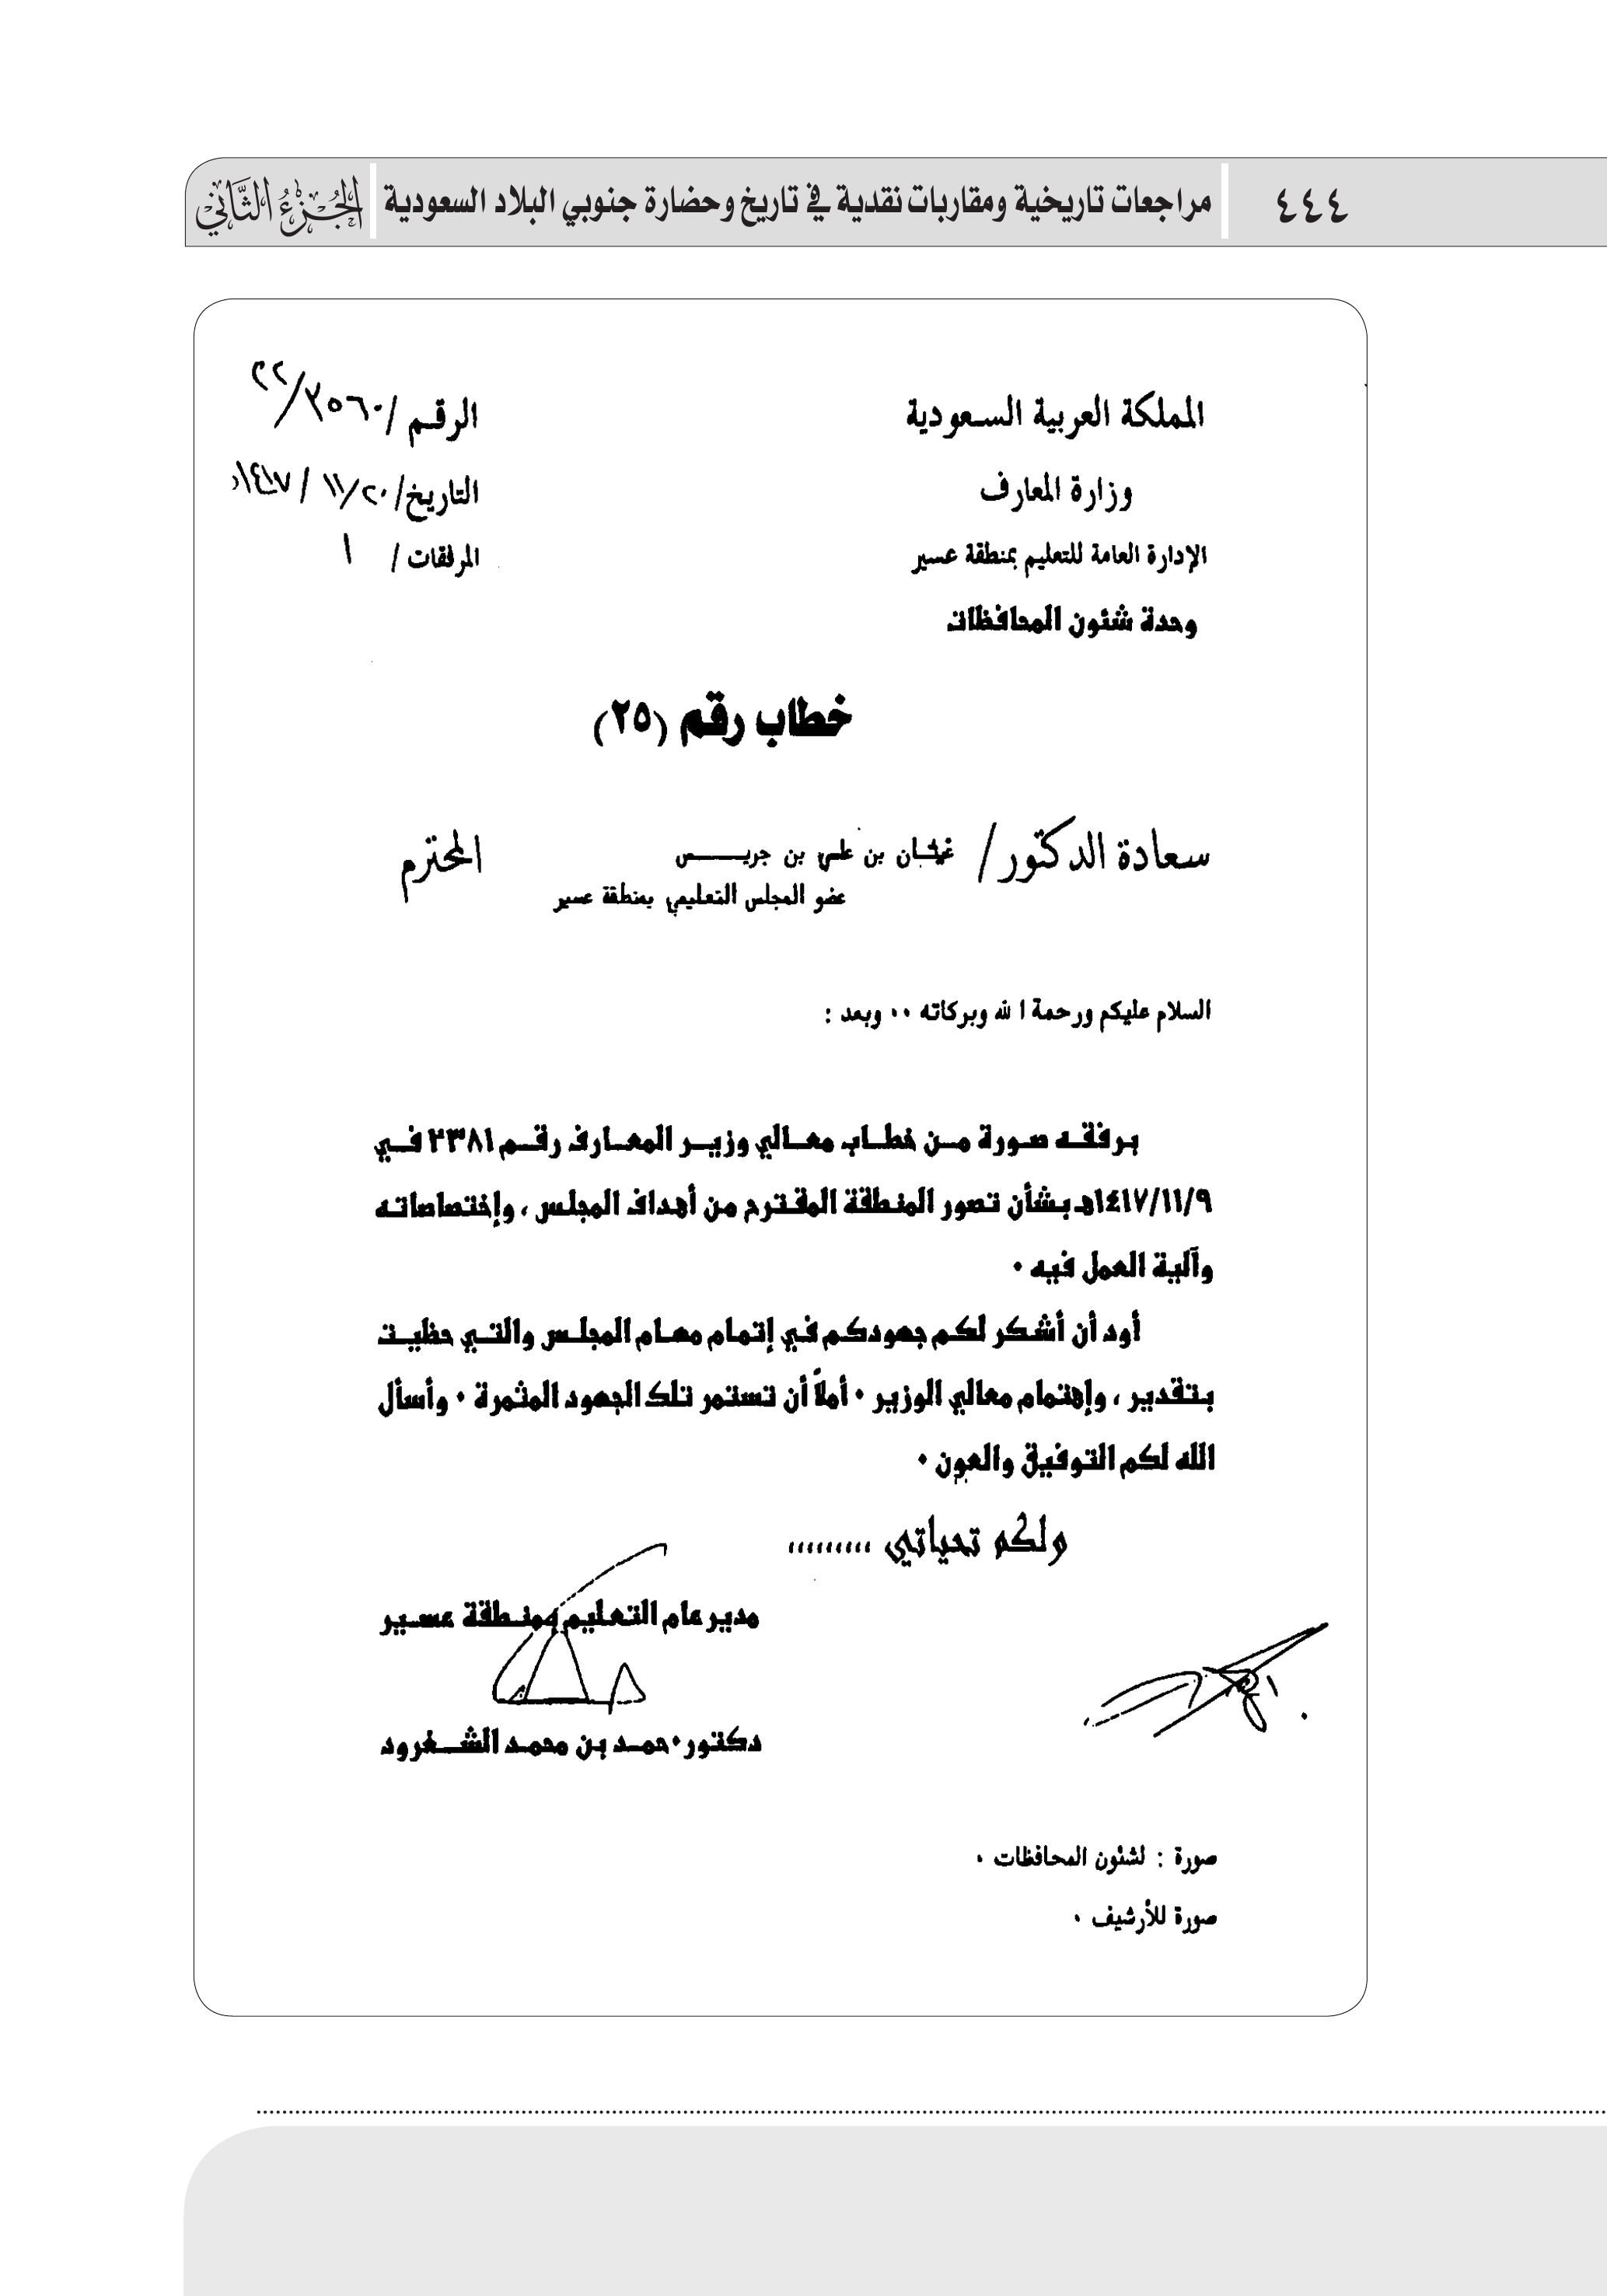 ٤٤٤
مراجعات تاريخية ومقاربات نقدية في تاريخ وحضارة جنوبي البلاد السعودية
الجزء الثاني
المملكة العربية السعودية
وزارة المعارف
الإدارة العامة للتعليم بمنطقة عسير
وحدة شئون المحافظات
الرقم / ٣٥٦٠/٢٢
التاريخ/ ٢٠/ ١١ / ١٤١٧
المرفقات / ١
خطاب رقم (٢٥)
سعادة الدكتور/ غيثان بن علي بن جريس المحترم
عضو المجلس التعليمي بمنطقة عسير
السلام عليكم ورحمة الله وبركاته ٠٠ وبعد :
برفقه صورة من خطاب معالي وزير المعارف رقم ٢٣٨١ في
١٤١٧/١١/٩هـ بشأن تصور المنطقة المقترح من أهداف المجلس ، وإختصاصاته
وآلية العمل فيه ٠
أود أن أشكر لكم جهودكم في إتمام مهام المجلس والتي حظيت
بتقدير ، وإهتمام معالي الوزير ٠ أملاً أن تستمر تلك الجهود المثمرة ٠ وأسأل
الله لكم التوفيق والعون ٠
ولكم تحياتي ,,,,,,,,,
مدير عام التعليم بمنطقة عسير
دكتور٠حمد بن محمد الشغرود
صورة : لشئون المحافظات ٠
صورة للأرشيف ٠